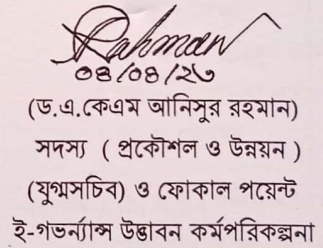 Rahman
০৪/০৪/২৩
(ড.এ.কেএম আনিসুর রহমান)
সদস্য ( প্রকৌশল ও উন্নয়ন )
(যুগ্মসচিব) ও ফোকাল পয়েন্ট
ই-গভর্ন্যান্স উদ্ভাবন কর্মপরিকল্পনা